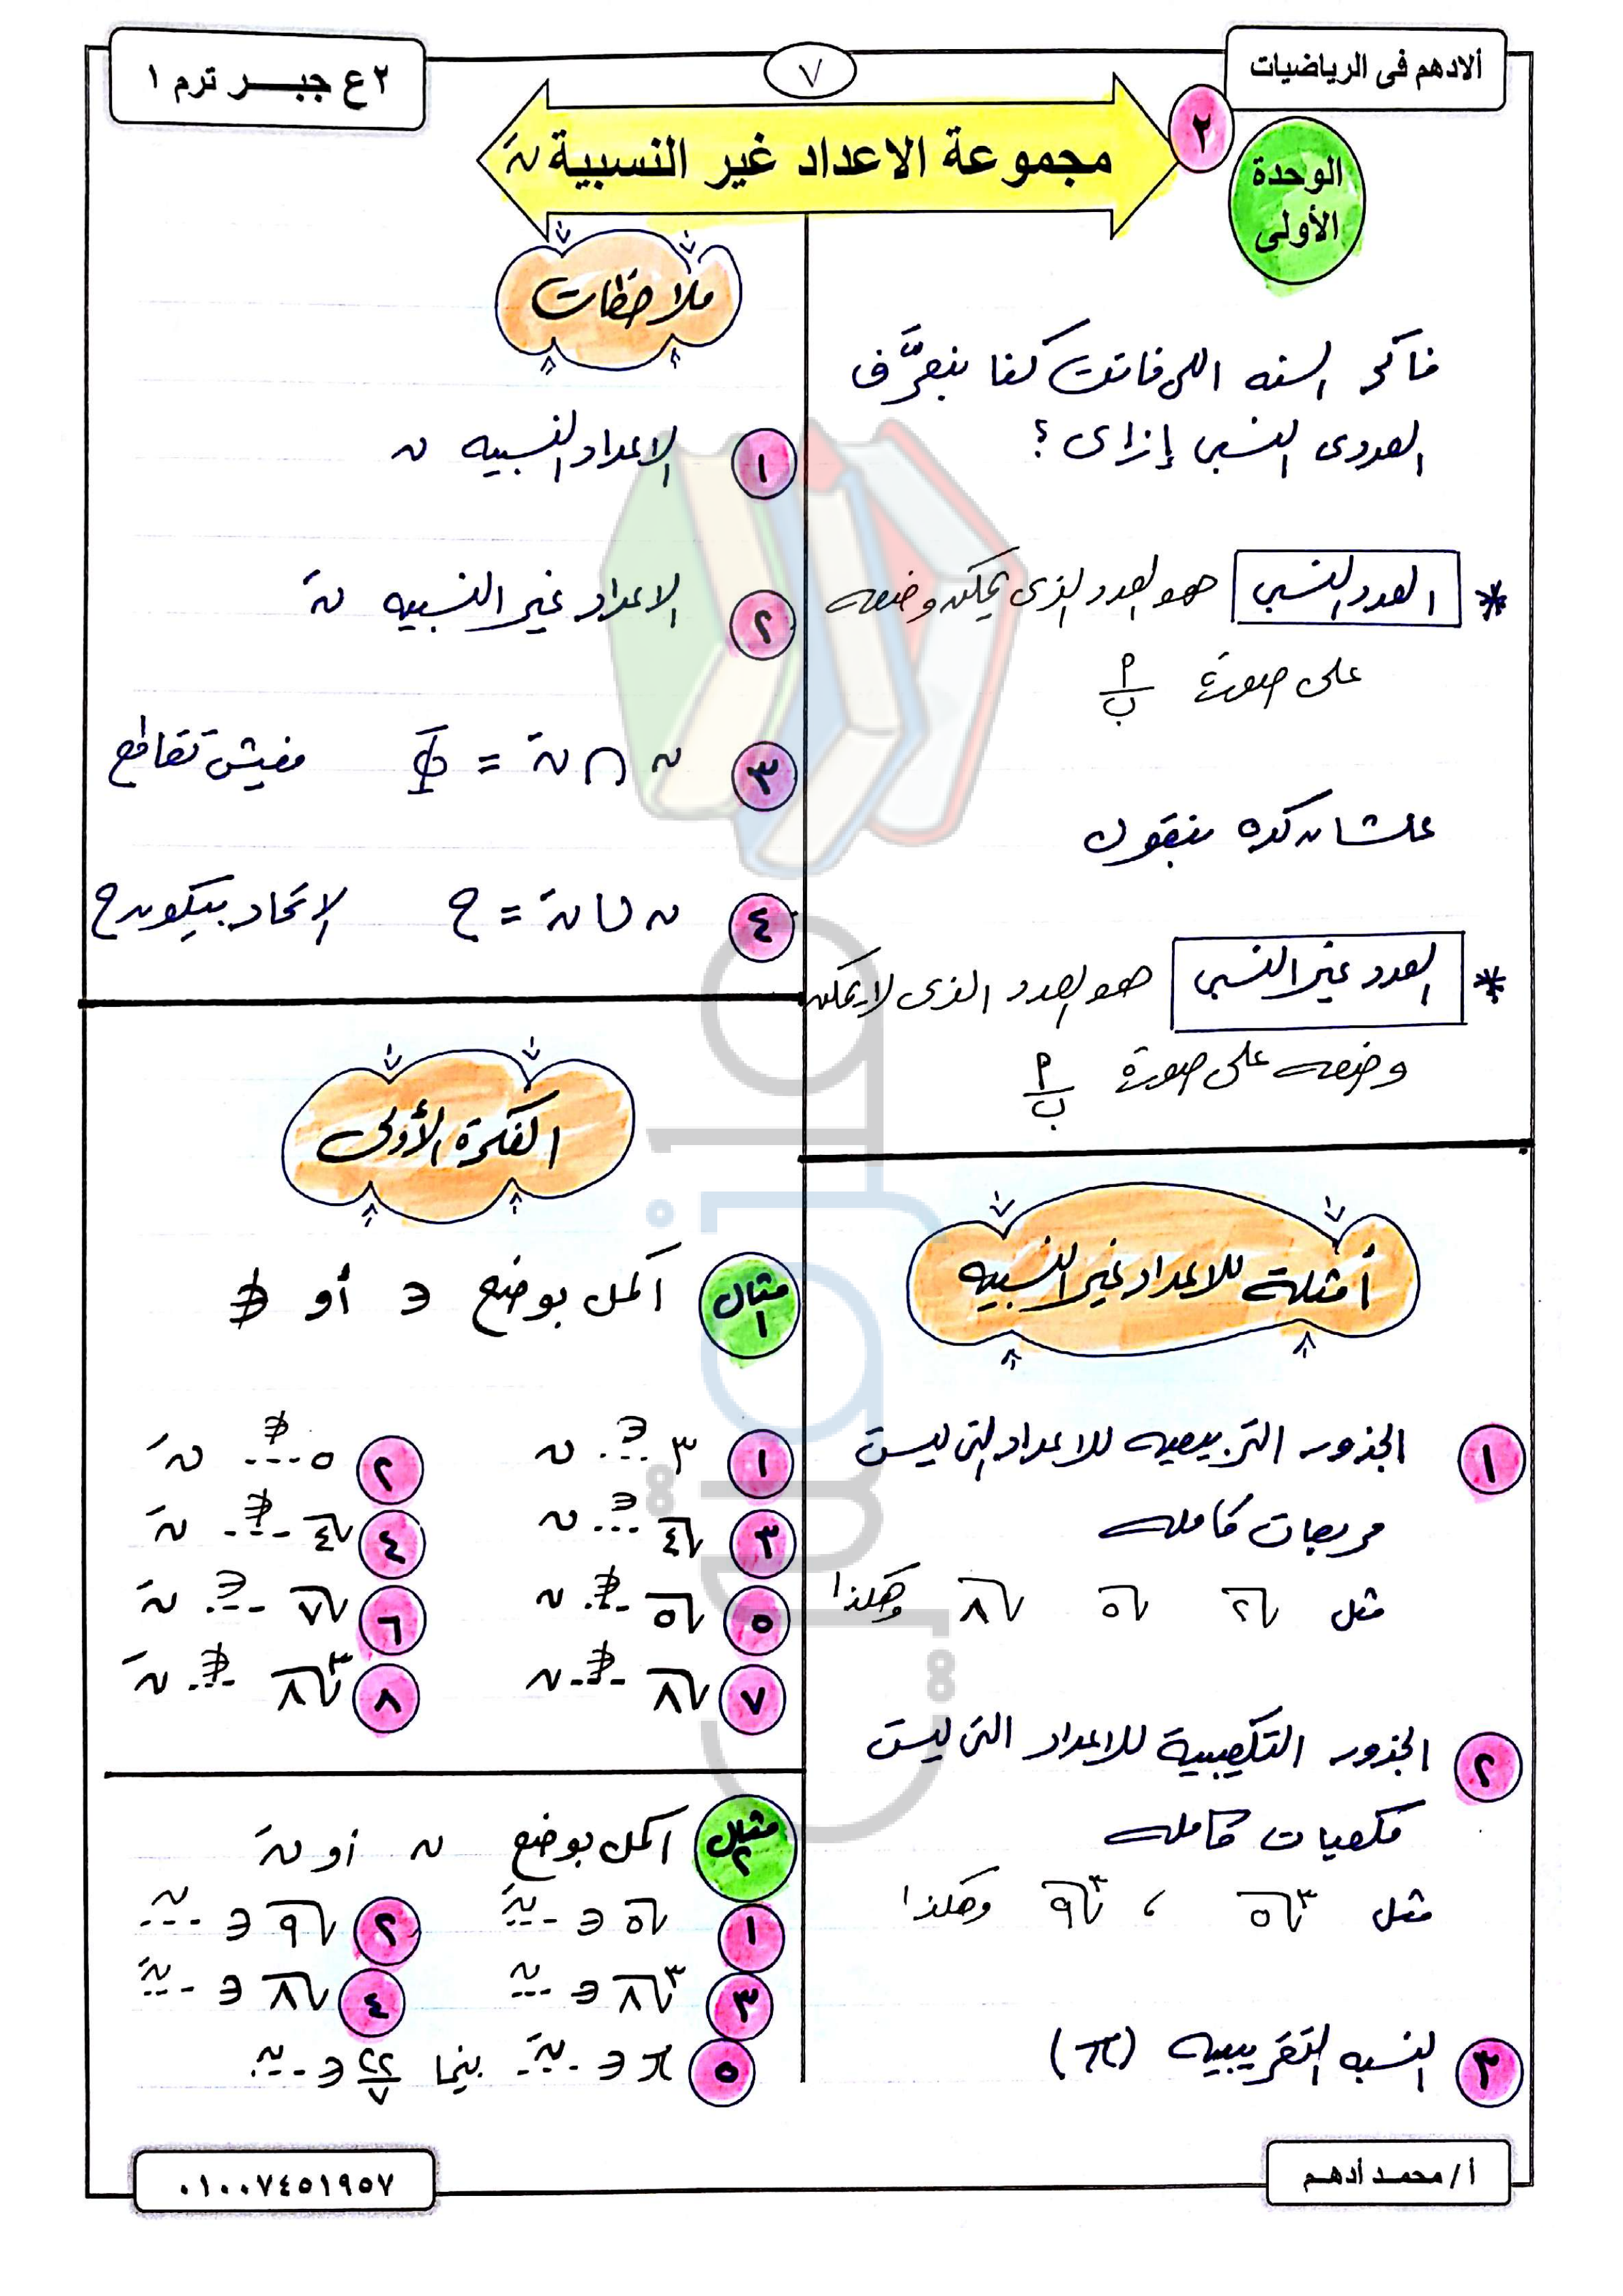 ألادهم فى الرياضيات
٧
٢ع جبـــر ترم ١
الوحدة
الأولى
٢
مجموعة الاعداد غير النسبية نَ
فاكر السنه اللى فاتت كنا بنعرَّف
العددى النسبى إزاى ؟
* العدد النسبى هو العدد الذى يمكن وضعه
على صورة أ/ب
علشان كده بنقول
* العدد غير النسبى هو العدد الذى لا يمكن
وضعه على صورة أ/ب
أمثلة للاعداد غير النسبيه
١ الجذور التربيعيه للاعداد التى ليست
مربعات كامله
مثل √٢ √٥ √٨ وهكذا
٢ الجذور التكعيبية للاعداد التى ليست
مكعبات كامله
مثل ∛٥ ، ∛٩ وهكذا
٣ النسبه التقريبيه (π)
ملاحظات
١ الاعداد النسبيه ن
٢ الاعداد غير النسبيه نَ
٣ ن ∩ نَ = Φ مفيش تقاطع
٤ ن ∪ نَ = ح الاتحاد بيكون ح
الفكرة الأولى
مثال ١ اكمل بوضع ∈ أو ∉
١ ٣ ..∈.. ن ٢ ٥ ..∉.. نَ
٣ √٤ ..∈.. ن ٤ √٤ ..∉.. نَ
٥ √٥ ..∉.. ن ٦ √٧ ..∈.. نَ
٧ √٨ ..∉.. ن ٨ ∛٨ ..∉.. نَ
مثال ٢ اكمل بوضع ن أو نَ
١ √٥ ∈ ..نَ.. ٢ √٩ ∈ ..ن..
٣ ∛٨ ∈ ..ن.. ٤ √٨ ∈ ..نَ..
٥ π ∈ ..نَ.. بينما ٢٢/٧ ∈ ..ن..
أ/ محمـد أدهـم
٠١٠٠٧٤٥١٩٥٧